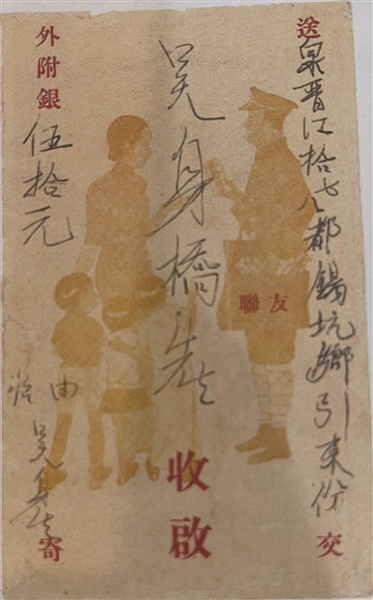 送泉晋江拾七八都錫坑鄉引東份交
友聯
吳身橋先生收啟
由吳身寄
外附銀伍拾元